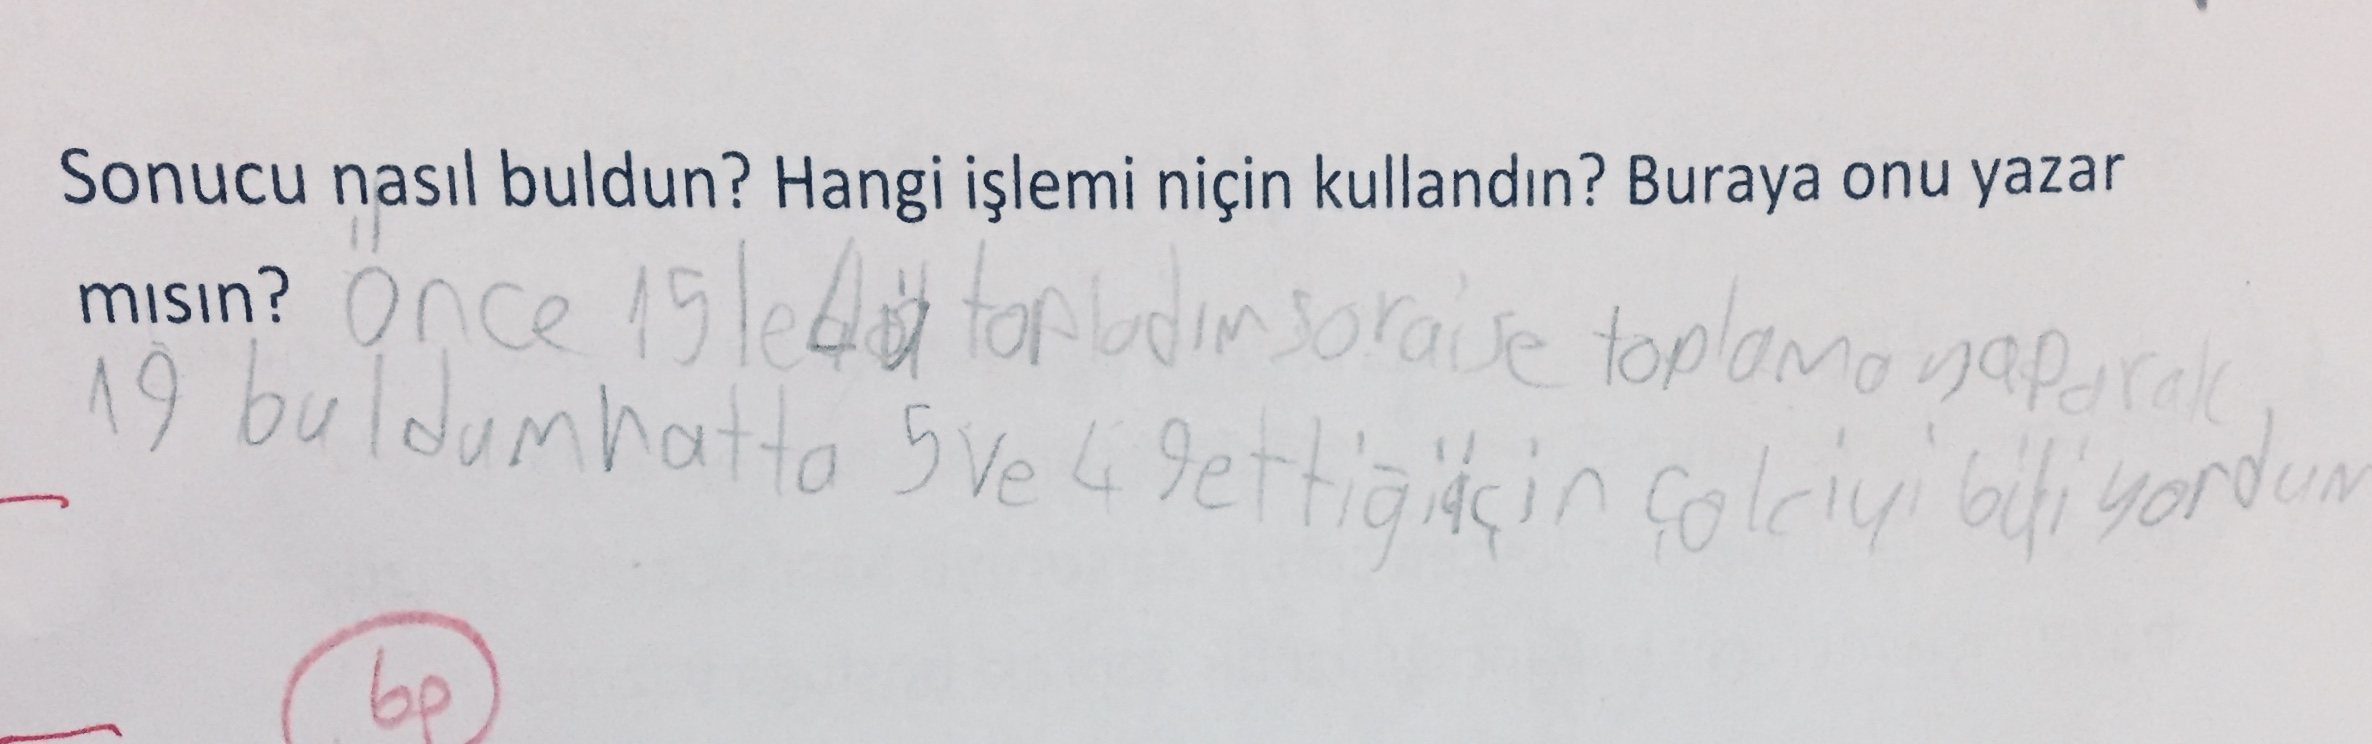 Sonucu nasıl buldun? Hangi işlemi niçin kullandın? Buraya onu yazar
mısın? Önce 15le4ü topladım soraise toplama yaparak
19 buldum hatta 5 ve 4 9ettiği için çolciyi biliyordum
bp